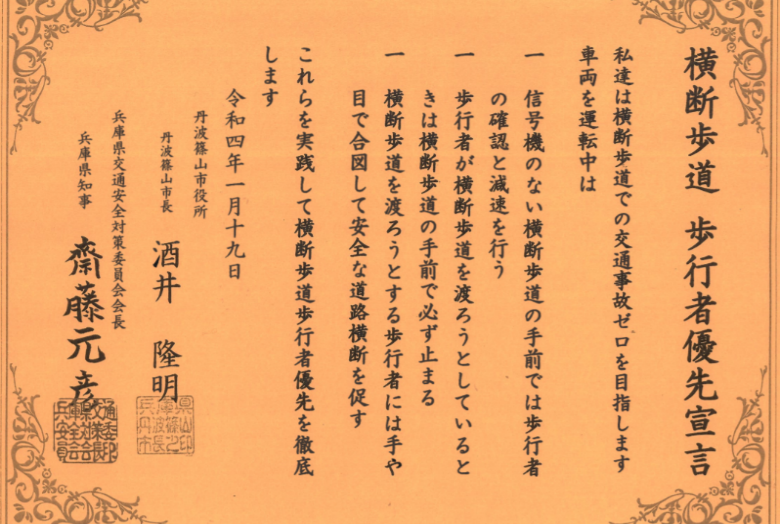 横断歩道 歩行者優先宣言
私達は横断歩道での交通事故ゼロを目指します
車両を運転中は
一 信号機のない横断歩道の手前では歩行者
の確認と減速を行う
一 歩行者が横断歩道を渡ろうとしていると
きは横断歩道の手前で必ず止まる
一 横断歩道を渡ろうとする歩行者には手や
目で合図して安全な道路横断を促す
これらを実践して横断歩道歩行者優先を徹底
します
令和四年一月十九日
丹波篠山市役所
丹波篠山市長 酒井 隆明
兵庫県交通安全対策委員会会長
兵庫県知事 齋藤元彦